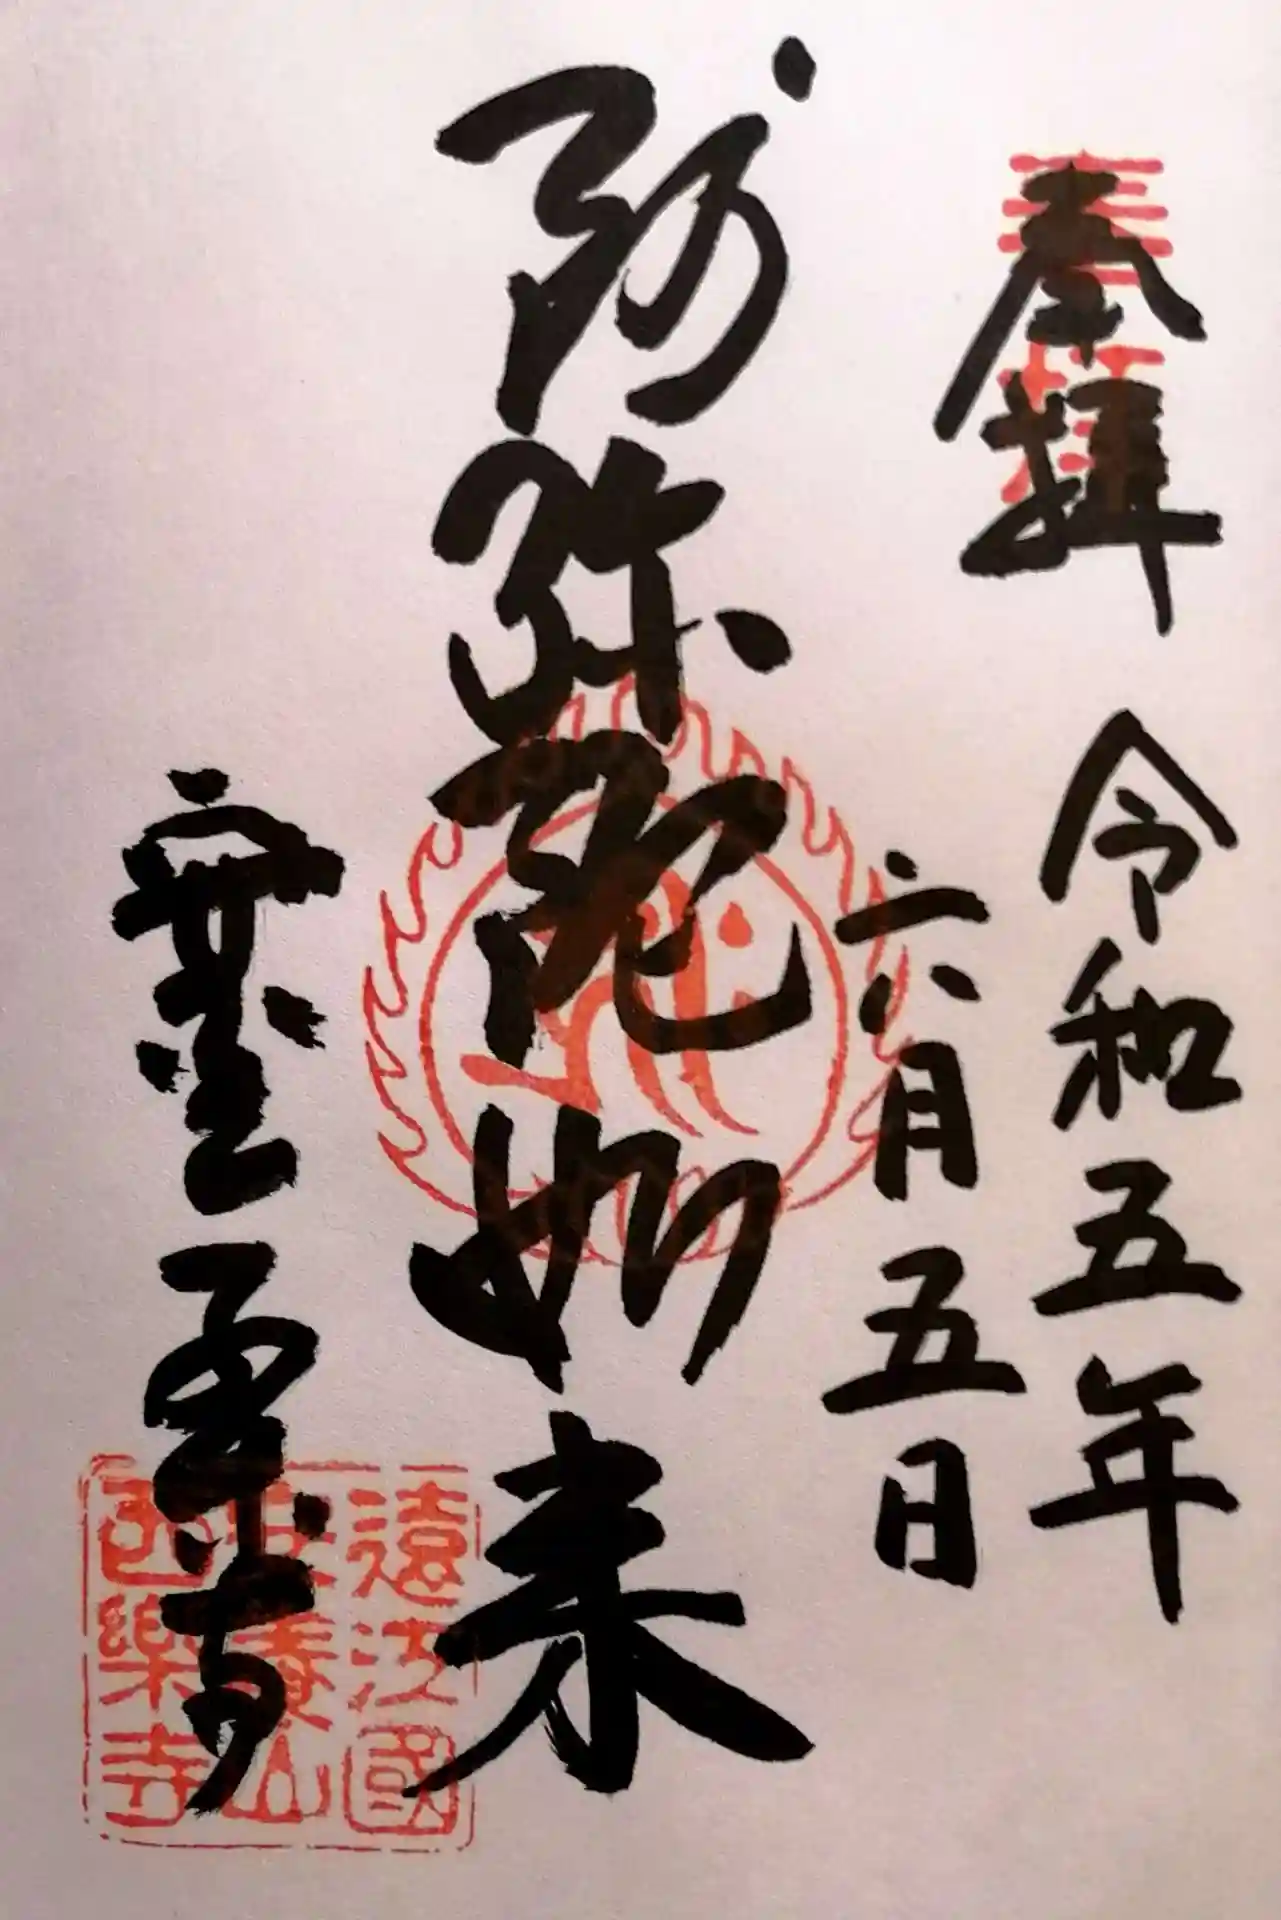 奉拝
奉拝
令和五年
六月五日
阿弥陀如来
西楽寺
遠江國
安養山
西樂寺